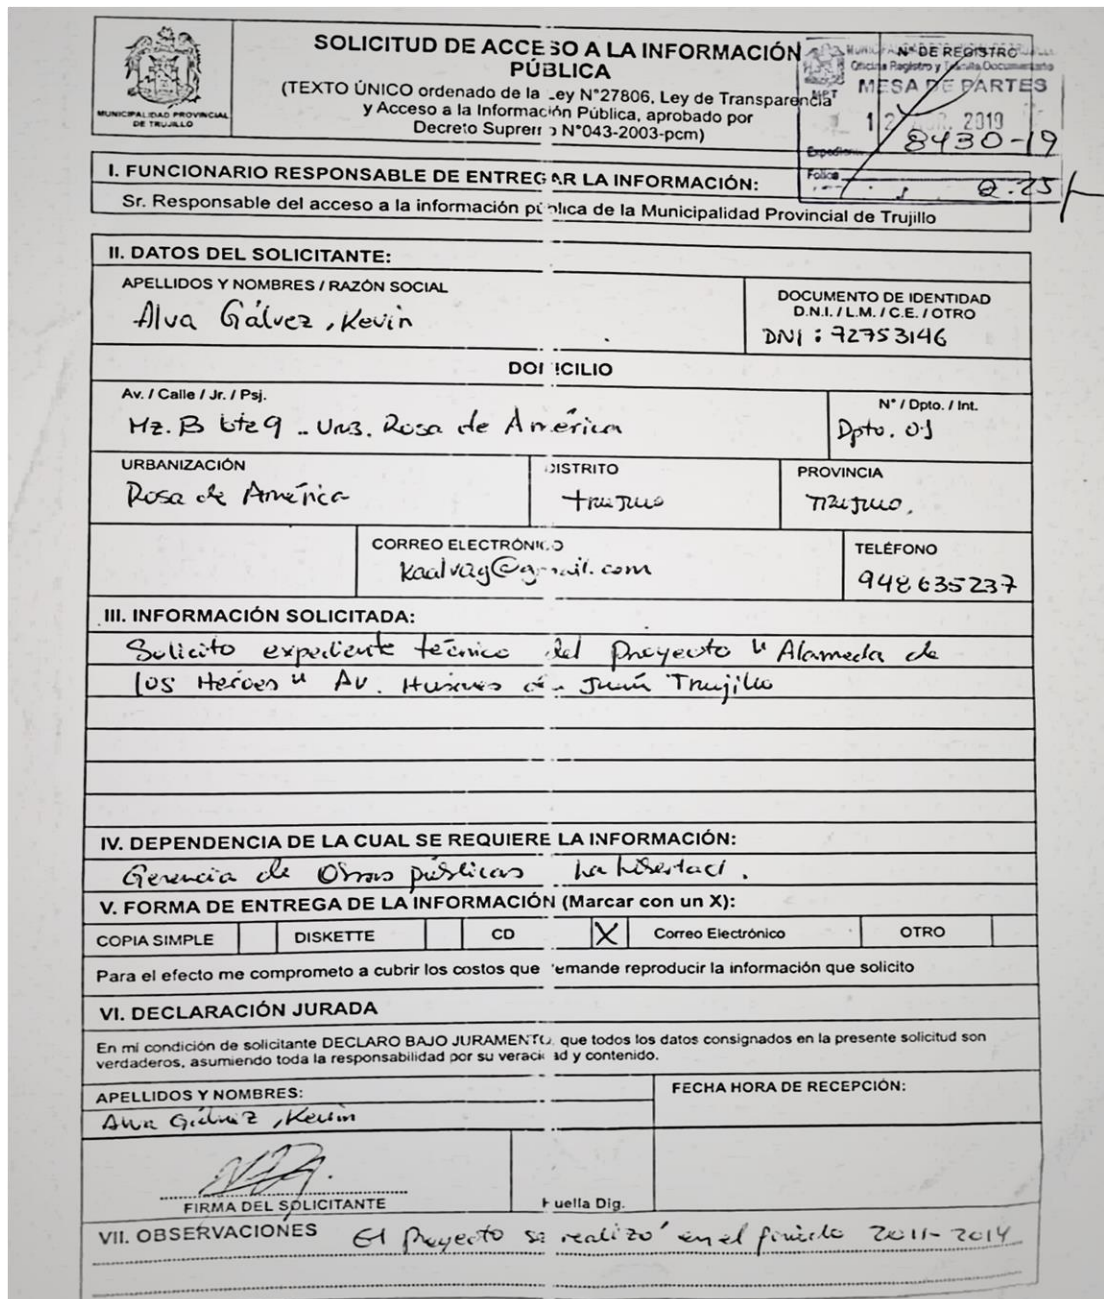 SOLICITUD DE ACCESO A LA INFORMACIÓN
PÚBLICA
(TEXTO ÚNICO ordenado de la Ley N°27806, Ley de Transparencia
y Acceso a la Información Pública, aprobado por
Decreto Supremo N°043-2003-pcm)
MUNICIPALIDAD PROVINCIAL
DE TRUJILLO
N° DE REGISTRO
Oficina Registro y Trámite Documentario
MPT
MESA DE PARTES
12 2019
Expediente 8430-19
Folios
I. FUNCIONARIO RESPONSABLE DE ENTREGAR LA INFORMACIÓN:
Sr. Responsable del acceso a la información pública de la Municipalidad Provincial de Trujillo
II. DATOS DEL SOLICITANTE:
APELLIDOS Y NOMBRES / RAZÓN SOCIAL
Alva Gálvez, Kevin
DOCUMENTO DE IDENTIDAD
D.N.I. / L.M. / C.E. / OTRO
DNI : 72753146
DOMICILIO
Av. / Calle / Jr. / Psj.
Mz. B lote 9 - Urb. Rosa de América
N° / Dpto. / Int.
Dpto. 01
URBANIZACIÓN
Rosa de América
DISTRITO
Trujillo
PROVINCIA
Trujillo.
CORREO ELECTRÓNICO
kaalvag@gmail.com
TELÉFONO
948635237
III. INFORMACIÓN SOLICITADA:
Solicito expediente técnico del Proyecto "Alameda de
los Heroes" Av. Husares de Junín Trujillo
IV. DEPENDENCIA DE LA CUAL SE REQUIERE LA INFORMACIÓN:
Gerencia de Obras públicas La Libertad.
V. FORMA DE ENTREGA DE LA INFORMACIÓN (Marcar con un X):
COPIA SIMPLE DISKETTE CD X Correo Electrónico OTRO
Para el efecto me comprometo a cubrir los costos que demande reproducir la información que solicito
VI. DECLARACIÓN JURADA
En mi condición de solicitante DECLARO BAJO JURAMENTO, que todos los datos consignados en la presente solicitud son
verdaderos, asumiendo toda la responsabilidad por su veracidad y contenido.
APELLIDOS Y NOMBRES:
Alva Gálvez, Kevin
FECHA HORA DE RECEPCIÓN:
FIRMA DEL SOLICITANTE
Huella Dig.
VII. OBSERVACIONES El Proyecto se realizó en el periodo 2011-2014